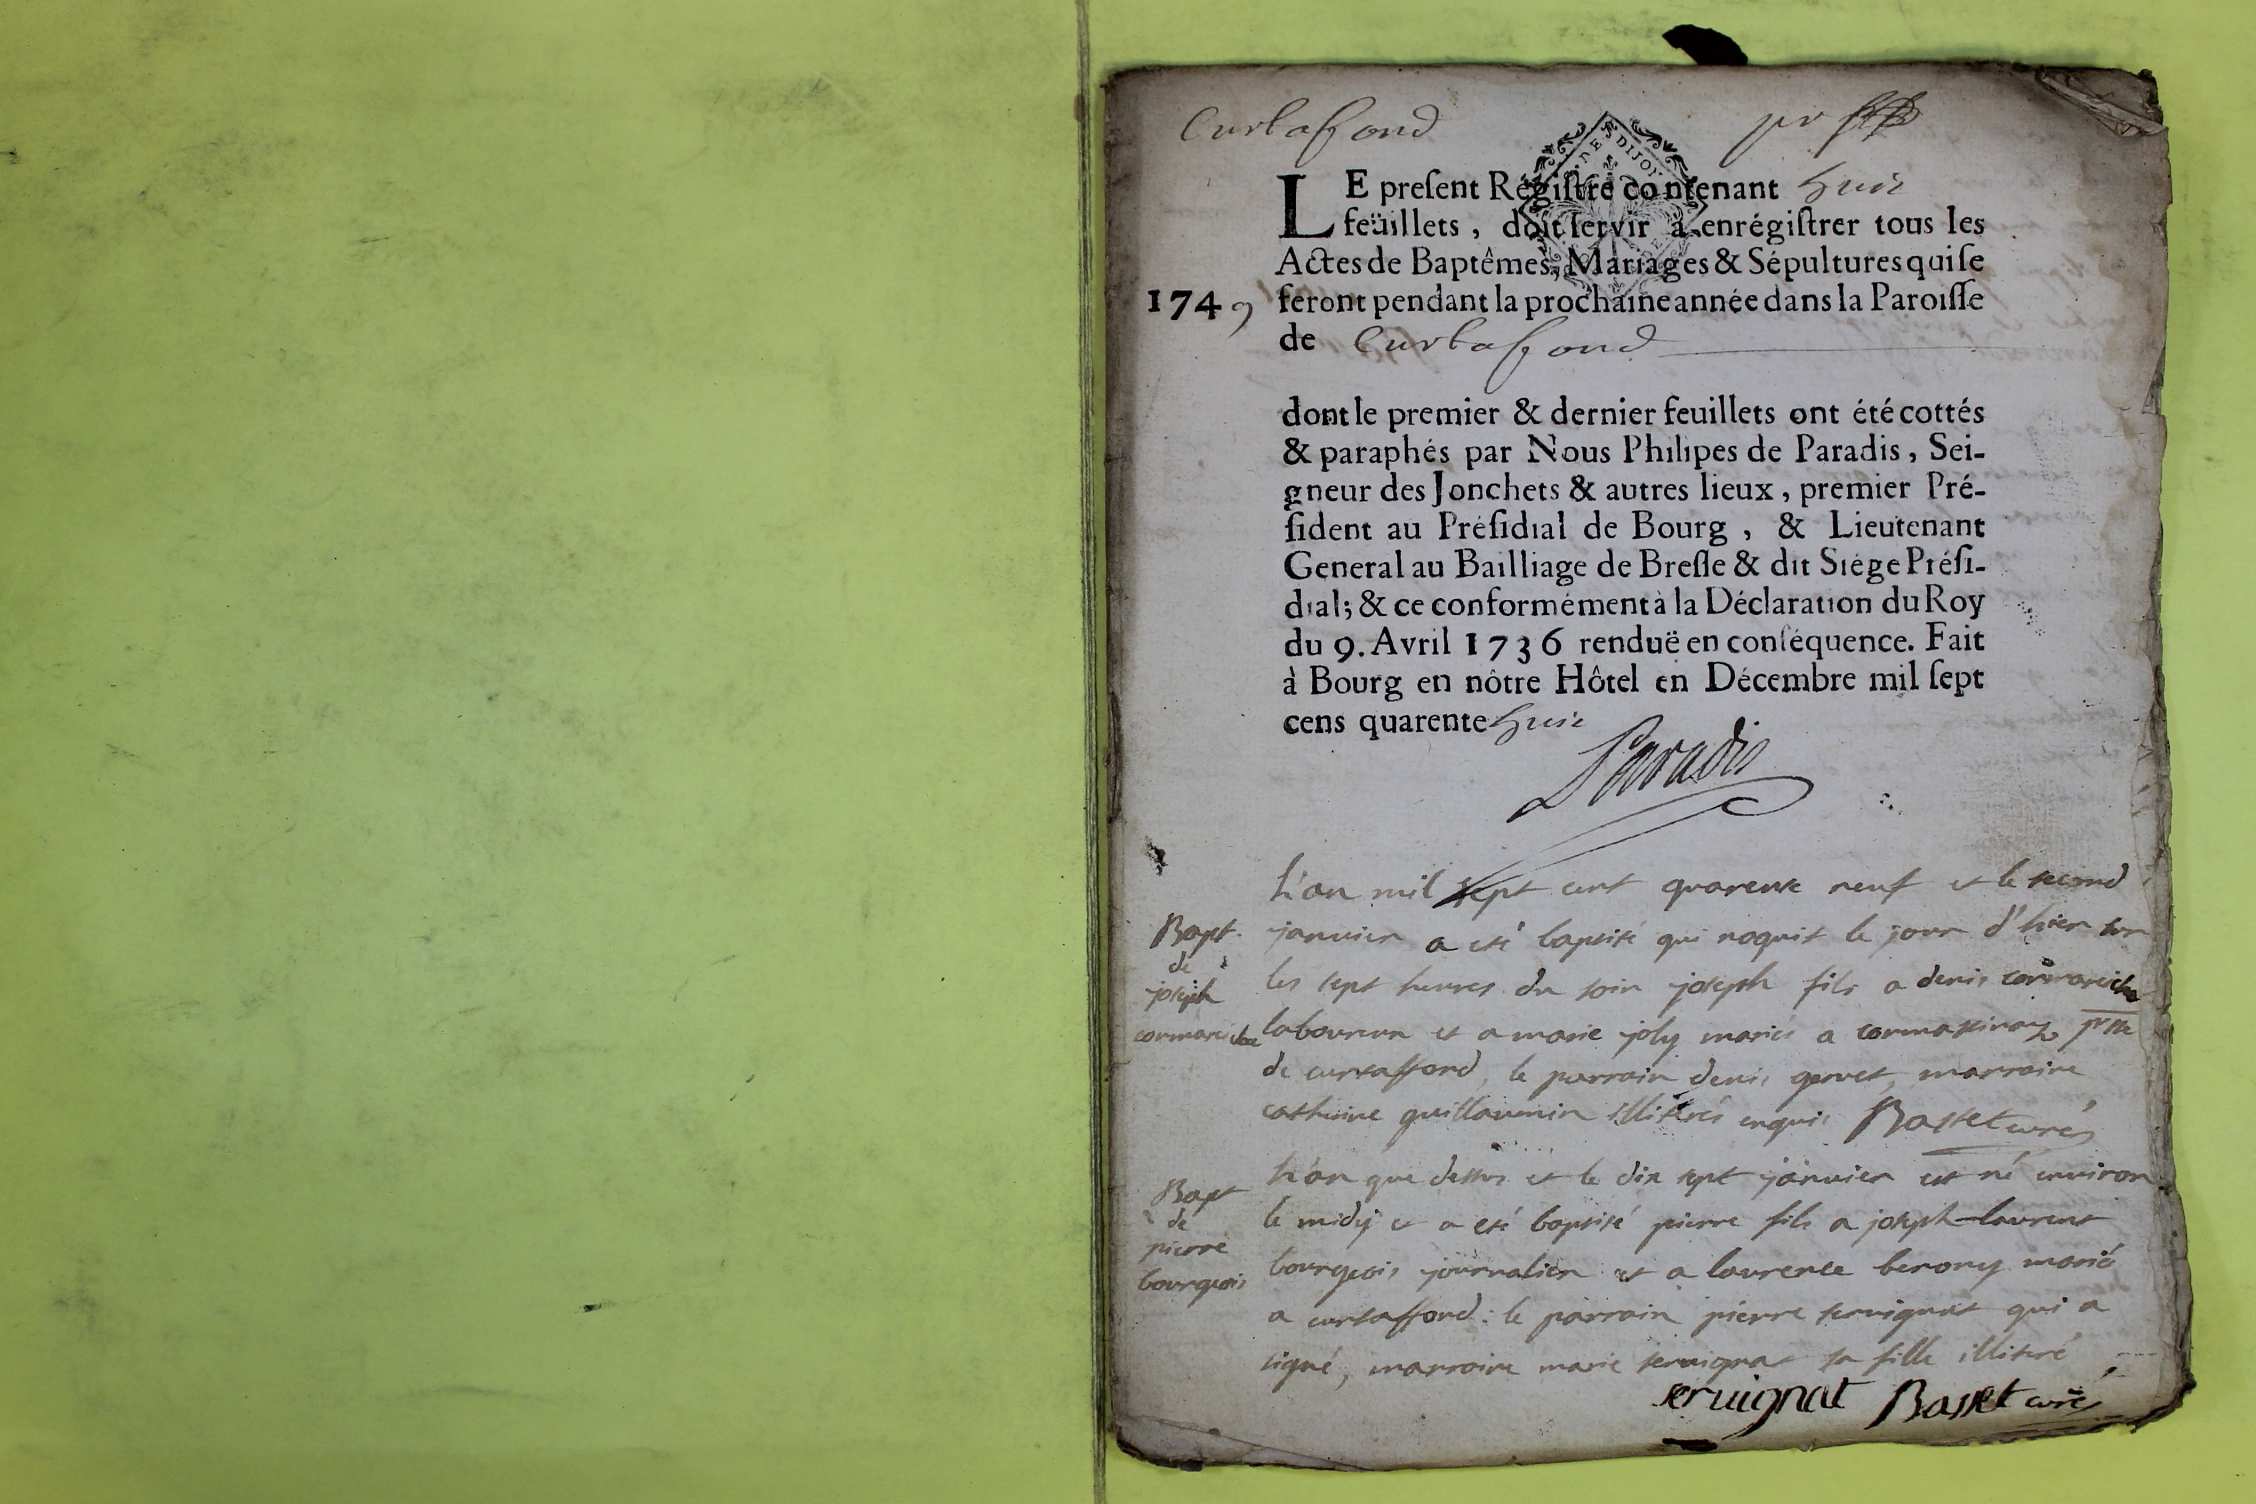 Curtaffond pr
DIJON
LE preſent Régiſtre contenant huit
feüillets, doit ſervir à enrégiſtrer tous les
Actes de Baptêmes, Mariages & Sépultures qui ſe
1749 feront pendant la prochaine année dans la Paroiſſe
de Curtaffond
dont le premier & dernier feuillets ont été cottés
& paraphés par Nous Philipes de Paradis, Sei-
gneur des Jonchets & autres lieux, premier Pré-
ſident au Préſidial de Bourg, & Lieutenant
General au Bailliage de Breſſe & dit Siége Préſi-
dial; & ce conformément à la Déclaration du Roy
du 9. Avril 1736 renduë en conſéquence. Fait
à Bourg en nôtre Hôtel en Décembre mil ſept
cens quarente huit
Paradis
L'an mil sept cent quarente neuf et le second
Bapt. de joseph cormareche
janvier a eté baptisé qui naquit le jour d'hier sur
les sept heures du soir joseph fils a denis cormareche
laboureur et a marie joly mariés a cormassinay psse
de curtaffond, le parrain denis gervet, marraine
catherine guillaumin illiterés enquis Basset curé
Bapt de pierre bourgeois
L'an que dessus et le dix sept janvier est né environ
le midy et a eté baptisé pierre fils a joseph-laurent
bourgeois journalier et a laurence berony mariés
a curtaffond: le parrain pierre servignat qui a
signé, marraine marie servignat sa fille illiteré
servignat Basset curé